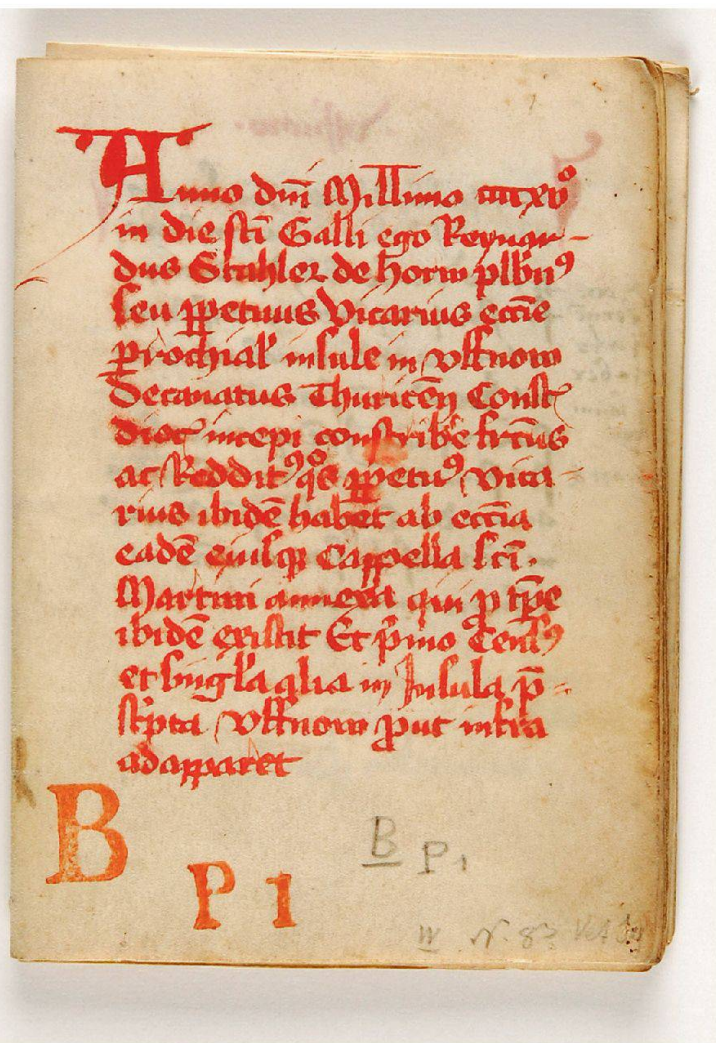 Anno dm̄ Millimo ccccxvᵒ
in die sc̄i Galli ego Reynar-
dus Stahler de horw plbn̄ꝰ
seu ꝑpetuus Vicarius ecc̄ie
ꝑrochial' insule in vffnow
Decanatus Thuricen̄ Const̄
dioc̄ incepi conscribe fructus
ac Redditꝰ qᵒs ꝑpetuꝰ vica-
rius ibidē habet ab ecc̄ia
eadē eiusqꝫ Cappella sc̄i
Martini annexa qui ꝓ tꝑe
ibidē existit Et p̄mo Censꝰ
et singl'a alia in Insula p̄-
sc̄pta vffnow ꝓut infra
adapparet
B
P 1
B P 1
IV N. 83